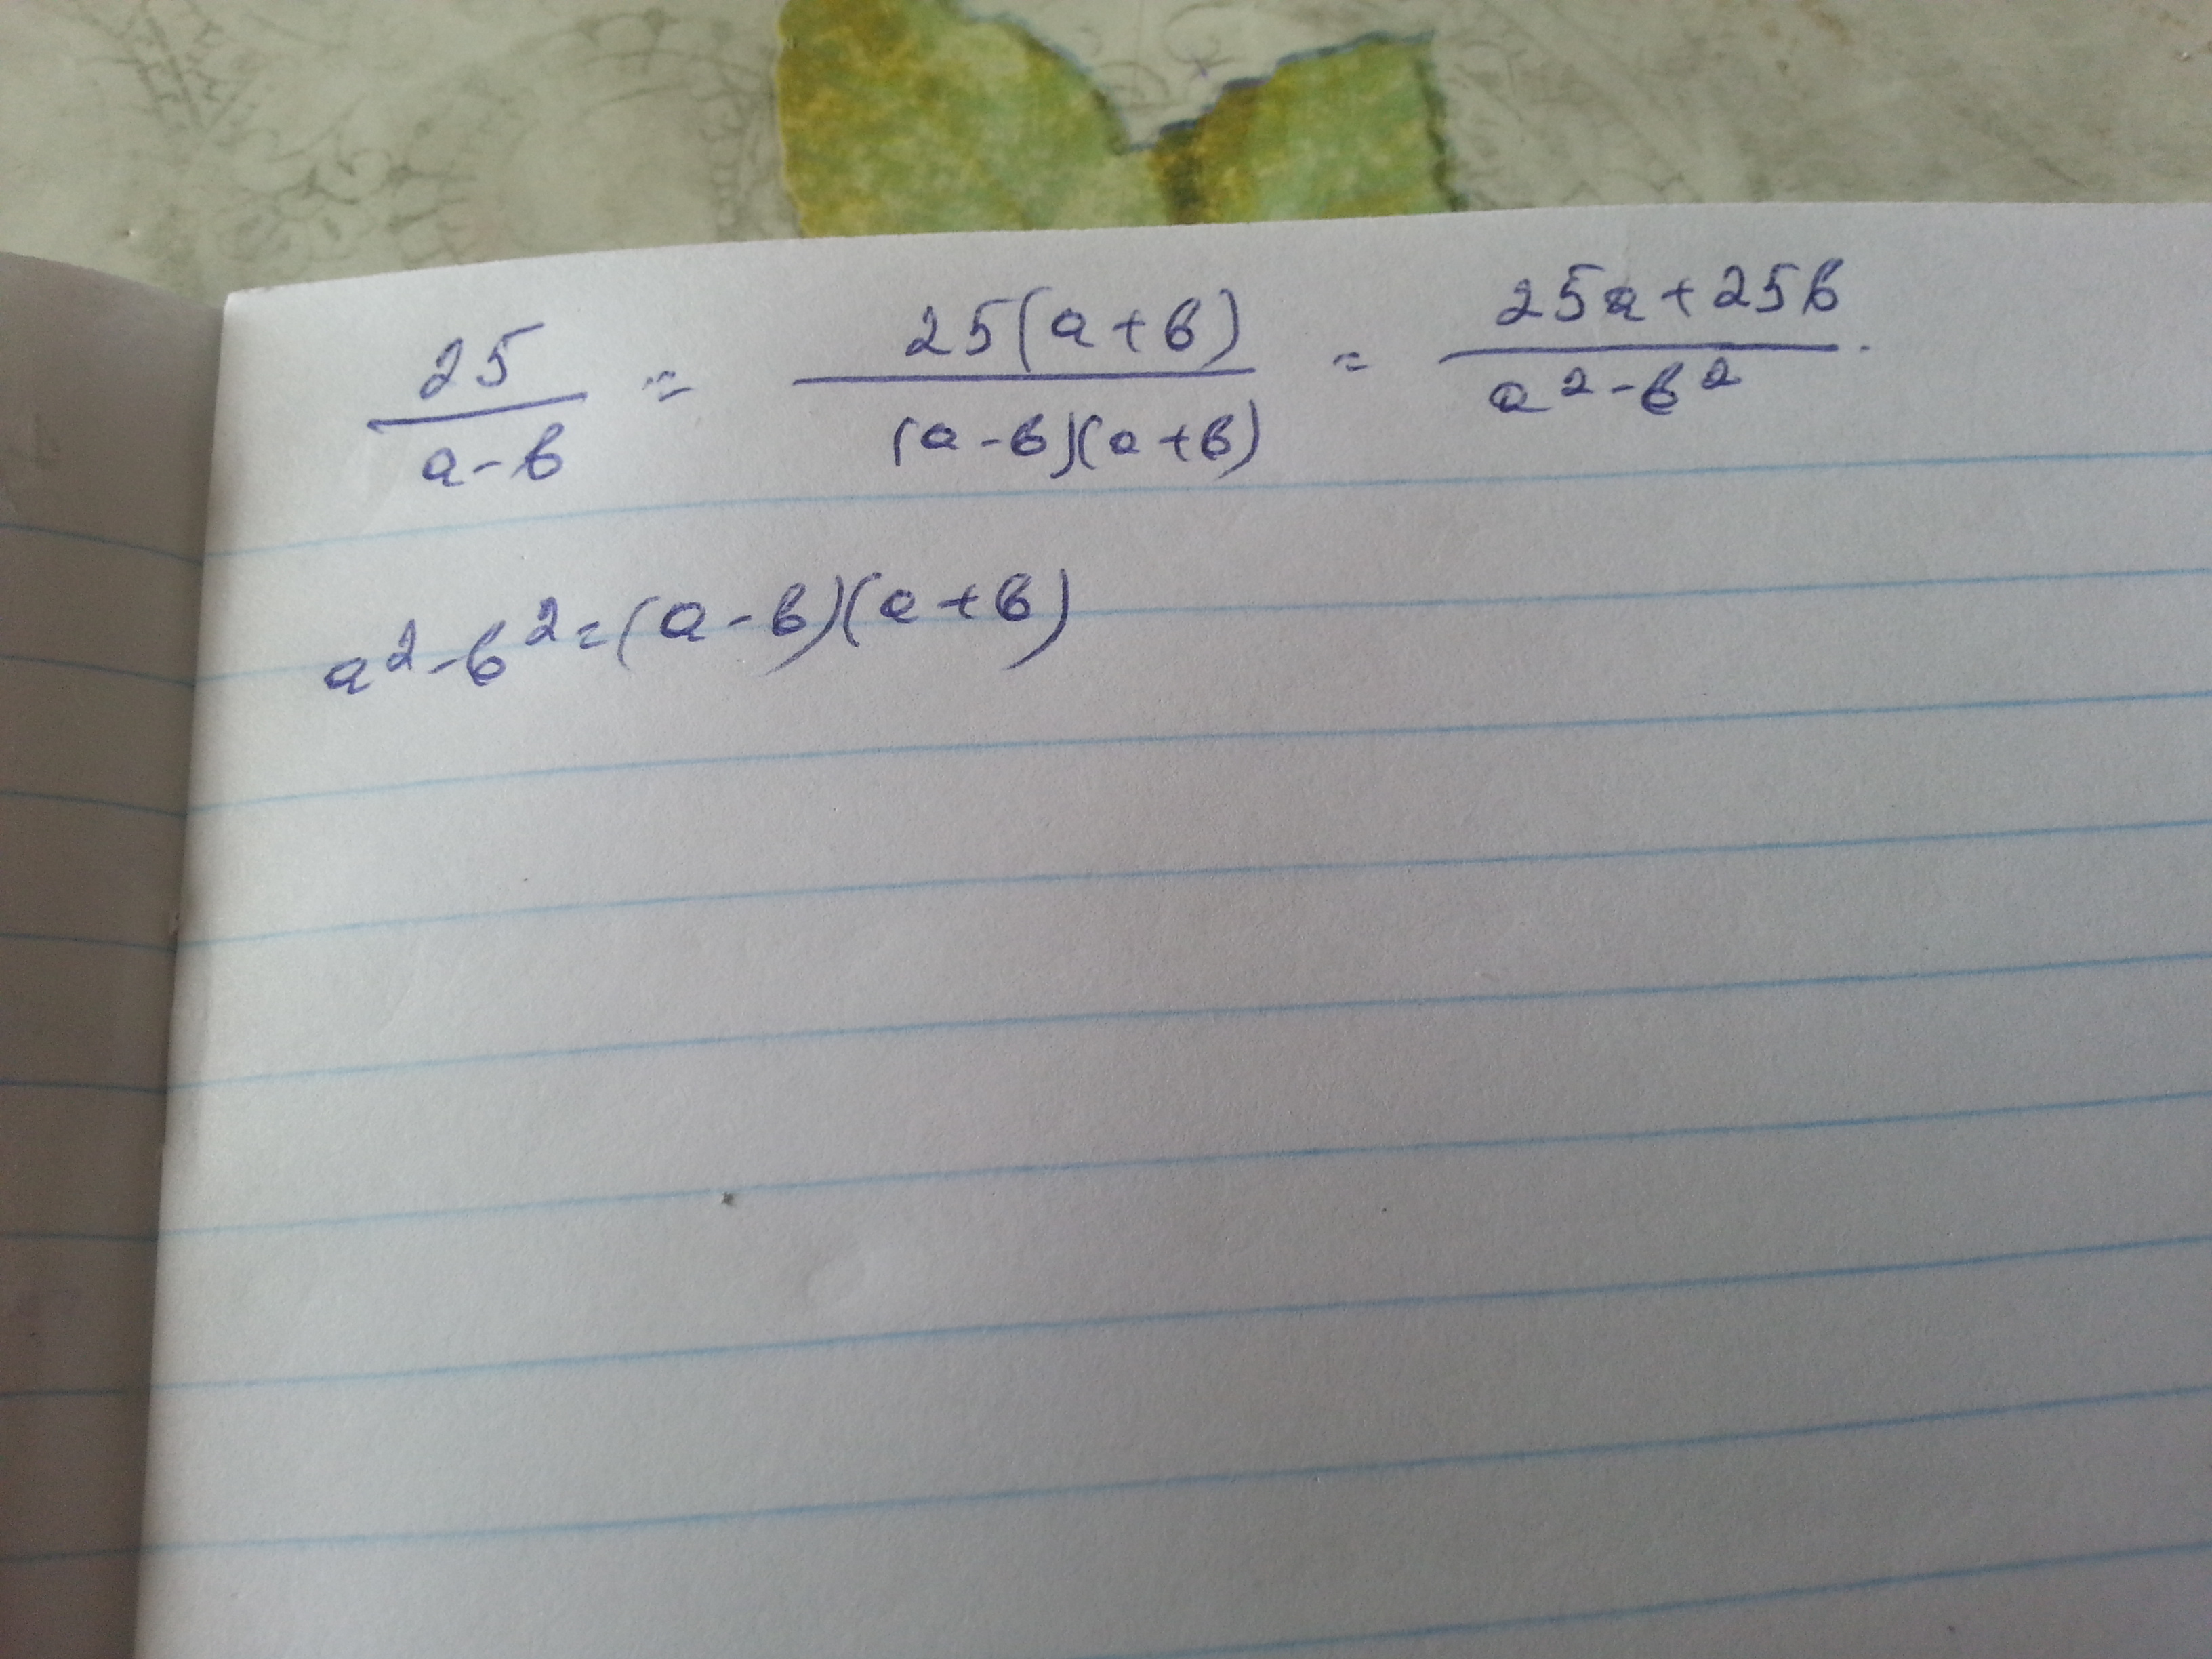 25/(a-b) = 25(a+b)/((a-b)(a+b)) = (25a+25b)/(a²-b²).
a²-b²=(a-b)(a+b)